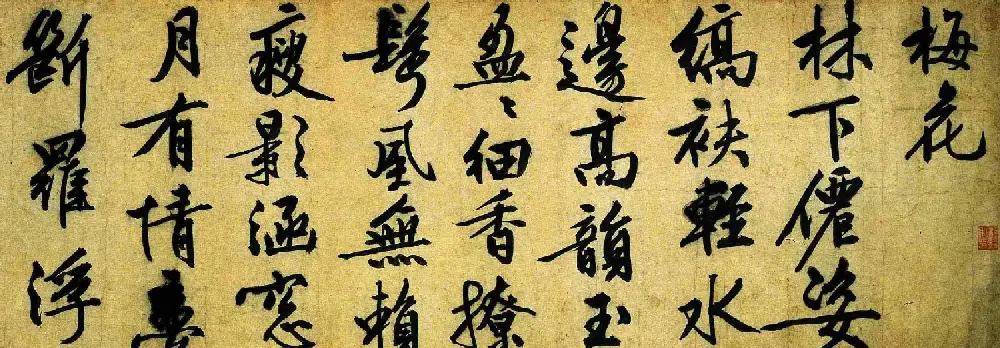 梅花
林下僊姿
縞袂輕水
邊高韻玉
盈〻細香撩
鬢風無賴
瘦影涵窓
月有情夢
斷羅浮